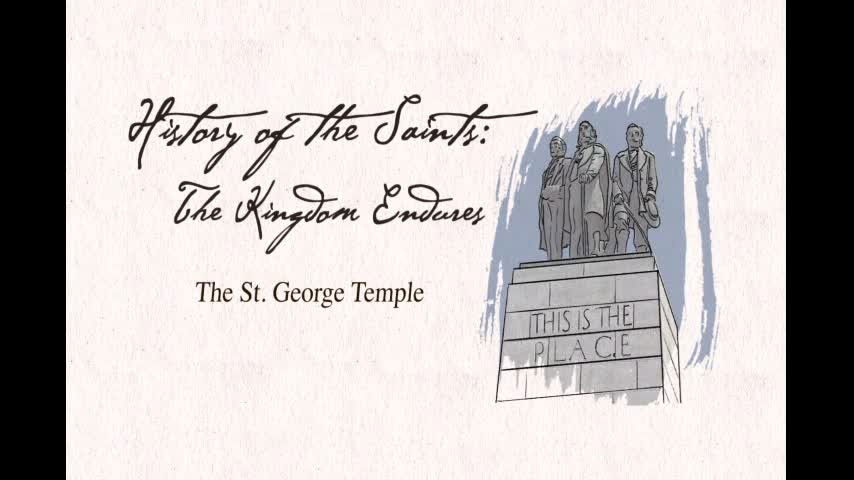 History of the Saints:
The Kingdom Endures
The St. George Temple
THIS IS THE
PLACE